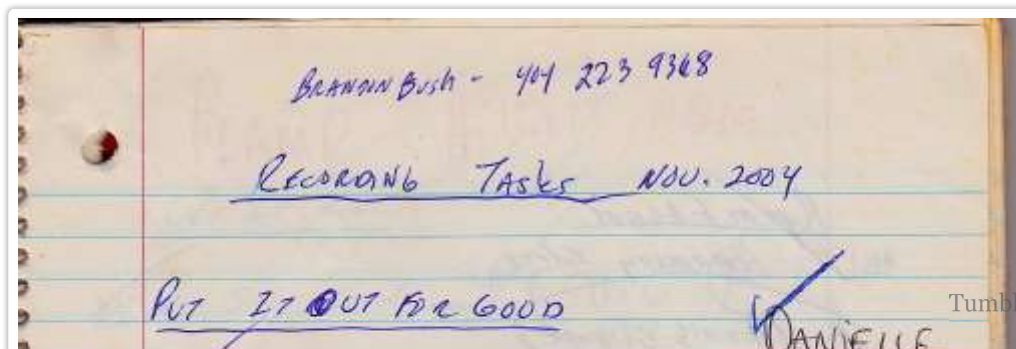 BRANDON BUSH - 404 223 9368
RECORDING TASKS NOV. 2004
PUT IT OUT FOR GOOD
DANIELLE
Tumbl